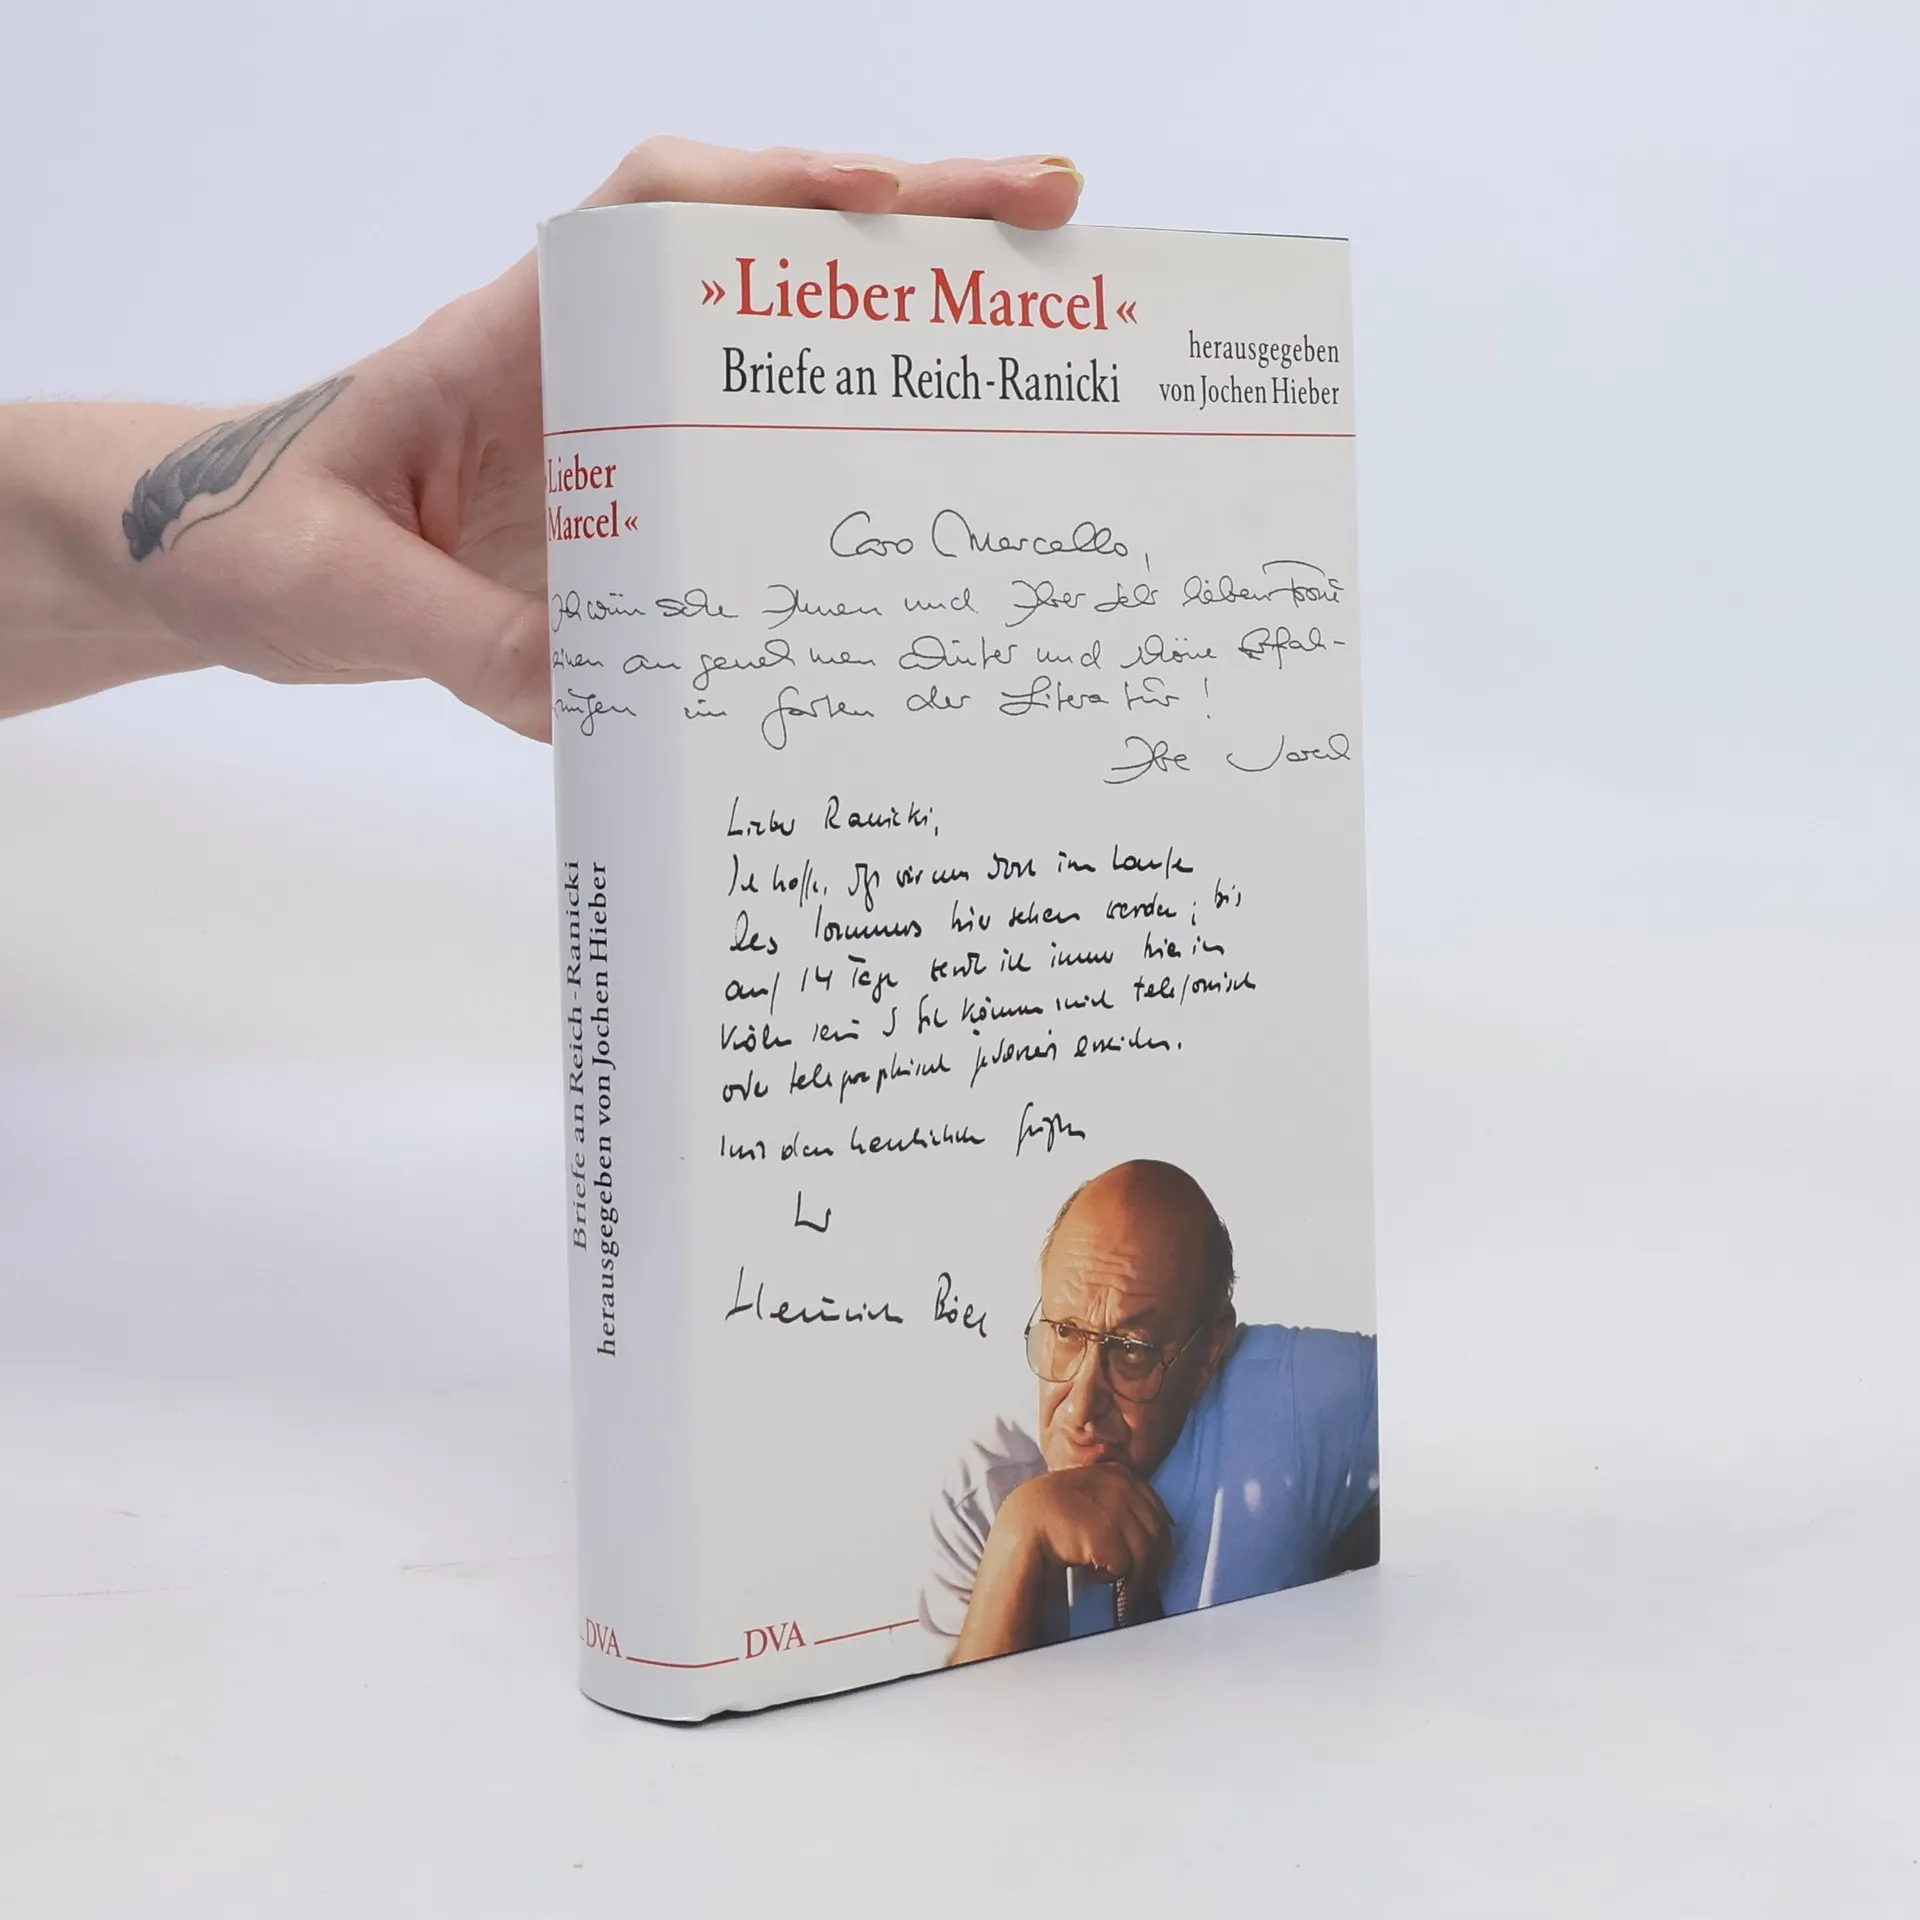 »Lieber Marcel«
Briefe an Reich-Ranicki
herausgegeben
von Jochen Hieber
»Lieber
Marcel«
Caro Marcello,
Ich wünsche Ihnen und Ihrer sehr lieben Frau
einen angenehmen Winter und schöne Erfah-
rungen im Garten der Literatur!
Ihre Sarah
Lieber Ranicki,
Ich hoffe, daß wir uns dort im Laufe
des Sommers hier sehen werden; bis
auf 14 Tage werde ich immer hier in
Köln sein Sie können mich telefonisch
oder telegraphisch jederzeit erreichen.
mit den herzlichen Grüßen
Ihr
Heinrich Böll
Briefe an Reich-Ranicki
herausgegeben von Jochen Hieber
DVA
DVA